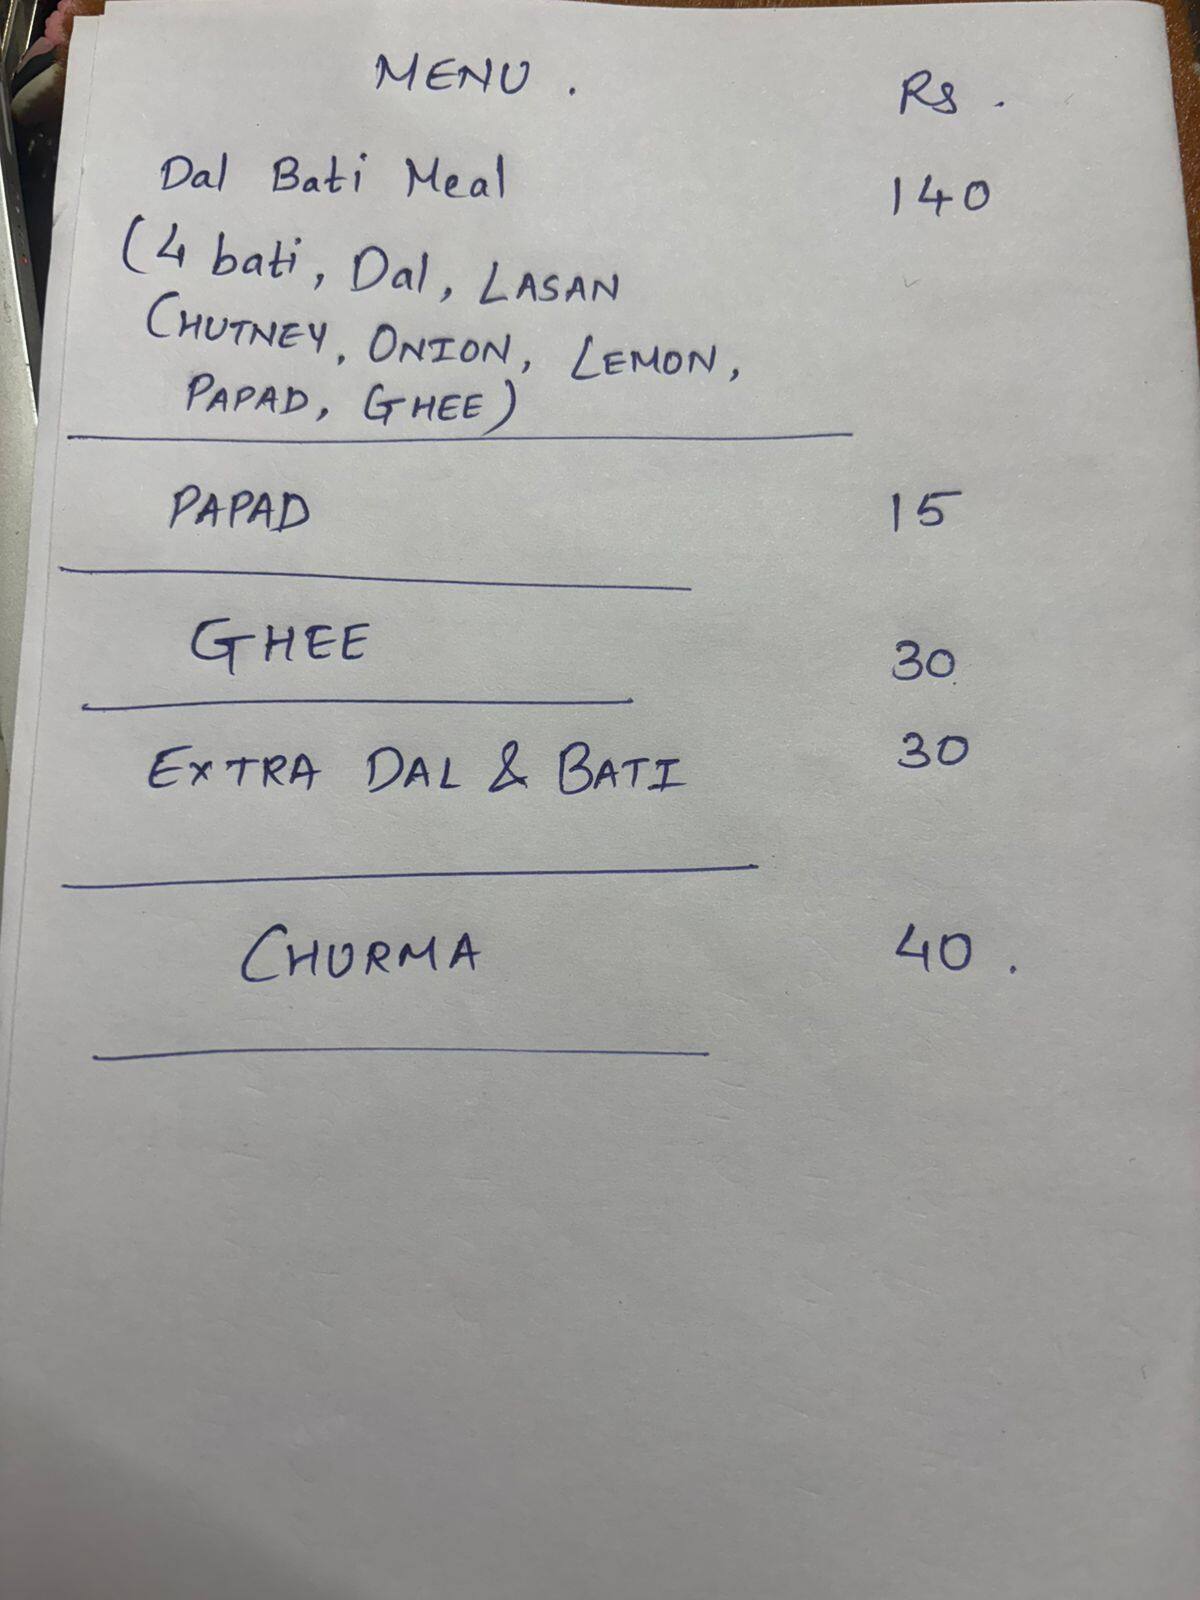 MENU .    Rs .
Dal Bati Meal    140
(4 bati, Dal, LASAN
CHUTNEY, ONION, LEMON,
PAPAD, GHEE)
PAPAD    15
GHEE    30
EXTRA DAL & BATI    30
CHURMA    40 .